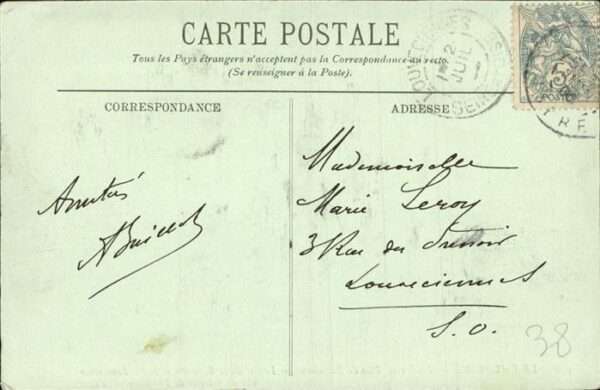 CARTE POSTALE
Tous les Pays étrangers n'acceptent pas la Correspondance au recto.
(Se renseigner à la Poste).
CORRESPONDANCE
ADRESSE
Amitiés
Mademoiselle
Marie Leroy
3 Rue du Pressoir
Louveciennes
S. O.
38
JUIL
5
R F